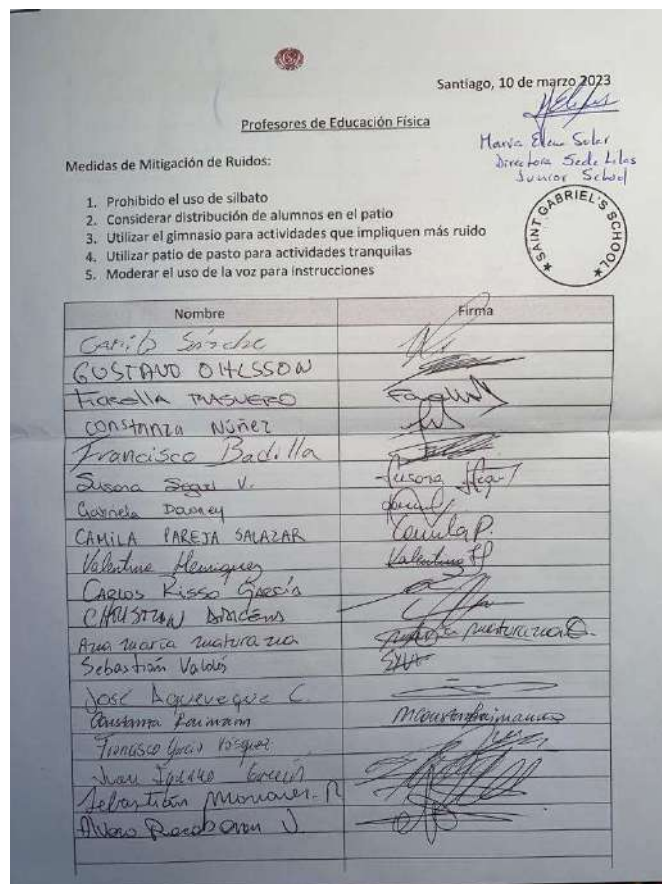 Santiago, 10 de marzo 2023
Profesores de Educación Física
María Elena Soler
Directora Sede Lilas
Junior School
Medidas de Mitigación de Ruidos:
SAINT GABRIEL'S SCHOOL
1. Prohibido el uso de silbato
2. Considerar distribución de alumnos en el patio
3. Utilizar el gimnasio para actividades que impliquen más ruido
4. Utilizar patio de pasto para actividades tranquilas
5. Moderar el uso de la voz para instrucciones
Nombre Firma
Camilo
GUSTAVO OHLSSON
Fiorella
Constanza Núñez
Francisco Badilla
Susana Segul V. Susana
Gabriela
CAMILA PAREJA SALAZAR Camila P.
Valentina Henriquez Valentina H
CARLOS RISSO GARCÍA
CHRISTIAN
Ana maría maturana maturana
Sebastián Valdés
José Aqueveque C.
Constanza Raimann
Francisco Vásquez
Juan
Sebastián
Alvaro